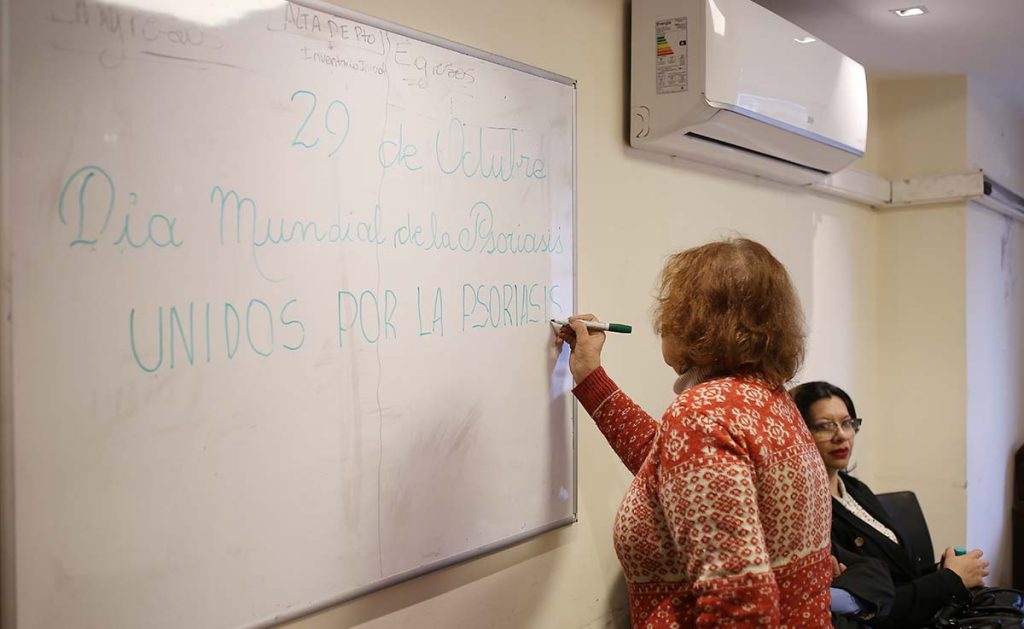 ALTA DE PTO
Inventario Inicial
Egresos
29 de Octubre
Dia Mundial de la Psoriasis
UNIDOS POR LA PSORIASIS